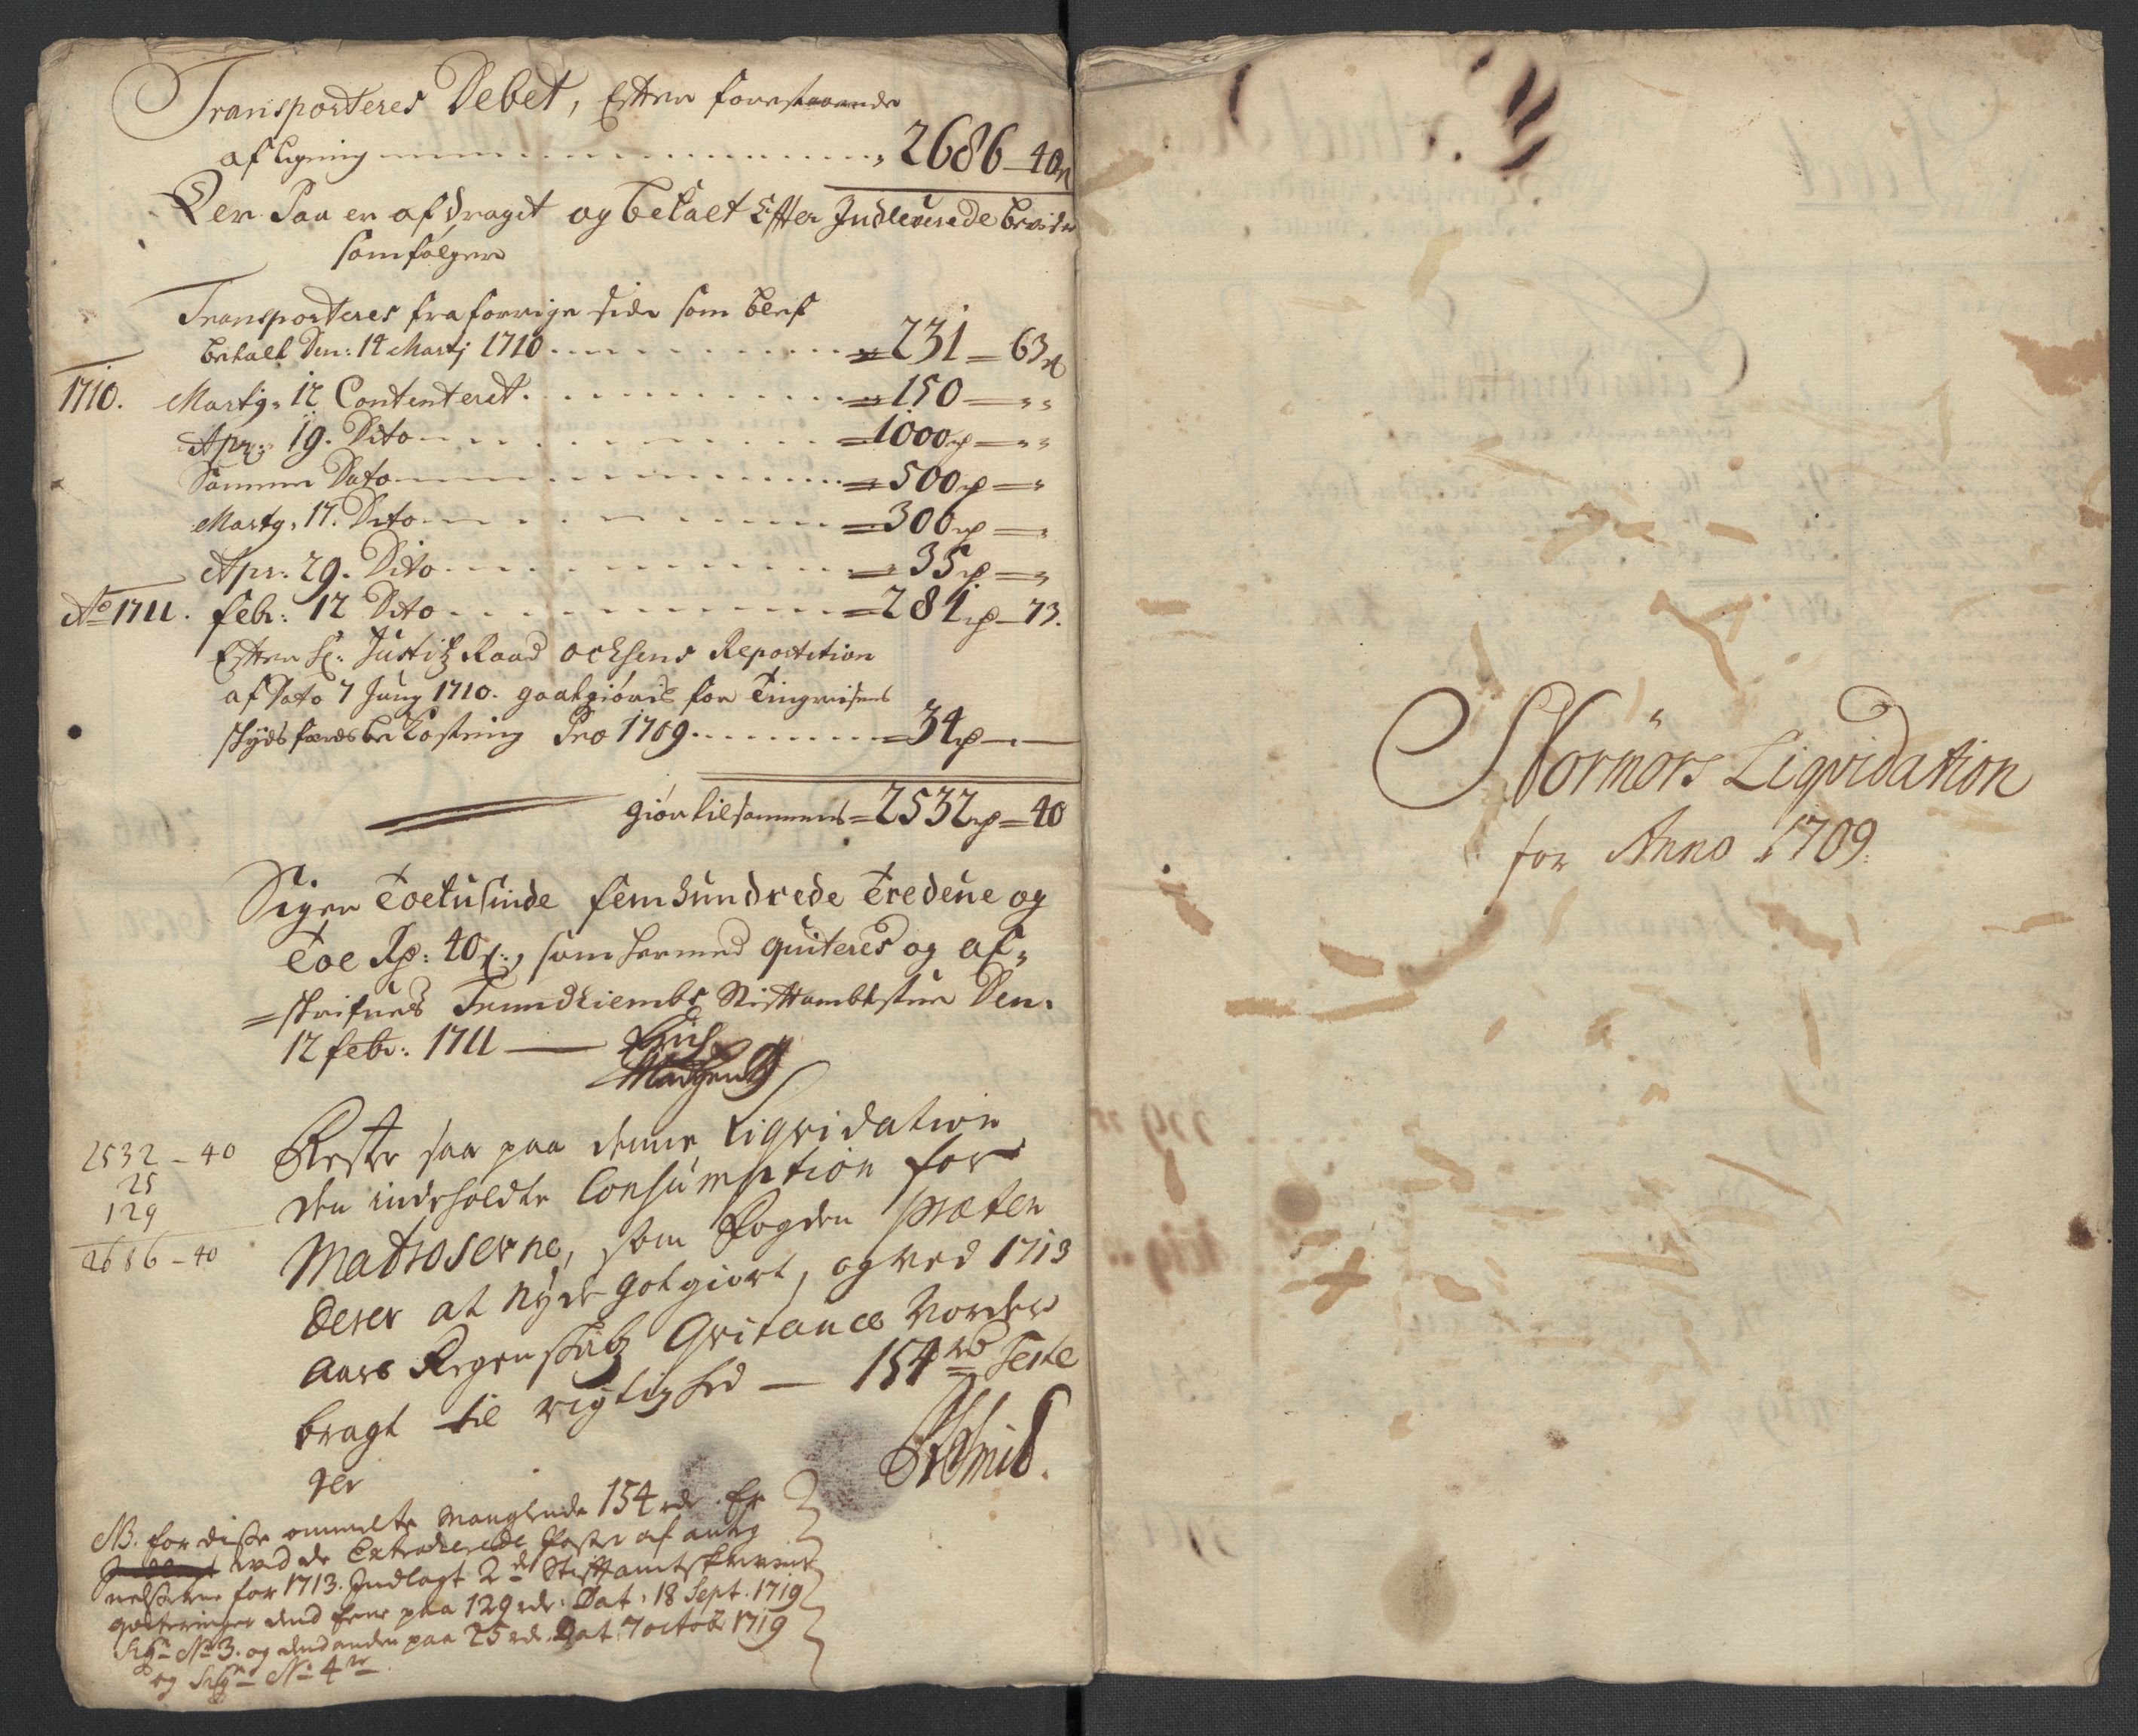 Transporteres Debet, Efter forestaaende
afligning 2686 – 40
Der Paa er afdraget og betalt Efter Indleverede beviser
som følger
Transporteres fra forrige side som blef
betalt Den: 14 Martij 1710 231 – 63
1710. Martij 12 Contenteret 150 –
Apr: 19. Dito 1000 –
Samme Dato 500 –
Martij 17. Dito 300 –
Apr. 29. Dito 35 –
Ao 1711. febr: 12 Dito 281 – 73.
Efter H: Justitz Raad Ochsens Repartition
af Dato 7 Junij 1710. godtgiøris for Tingreisens
skydsfærds bekostning Pro 1709 34 –
giør tilsammens 2532 – 40
Siger Toetusinde femhundrede Tredeue og
Toe Rd: 40 s:, som hermed quiteres og af-
skrifves Trundhiembs Stiftambtstue Den.
12 febr: 1711
Rester saa paa denne Liqvidation
2532 – 40
25
129
2686 – 40
den indeholdte Consumption for
Matroserne, som Fogden præten
derer at nyde gotgiort, og ved 1713
Aars Regenskabs Qvitance vorder
bragt til rigtighed – 154 rd Teste
Schmid.
NB. for disse ommelte manglende 154 rdr. Er
ved de Extraderede Poster af anteg
nelserne for 1713. Indlagt 2de Stiftamtskrivers
qviteringer dend Eene paa 129 rdr. Dat. 18 Sept. 1719
Sign No 3. og dend anden paa 25 rdr. Dat. 7 octob 1719
og Sign No 4
Normørs Liqvidation
for Anno 1709.